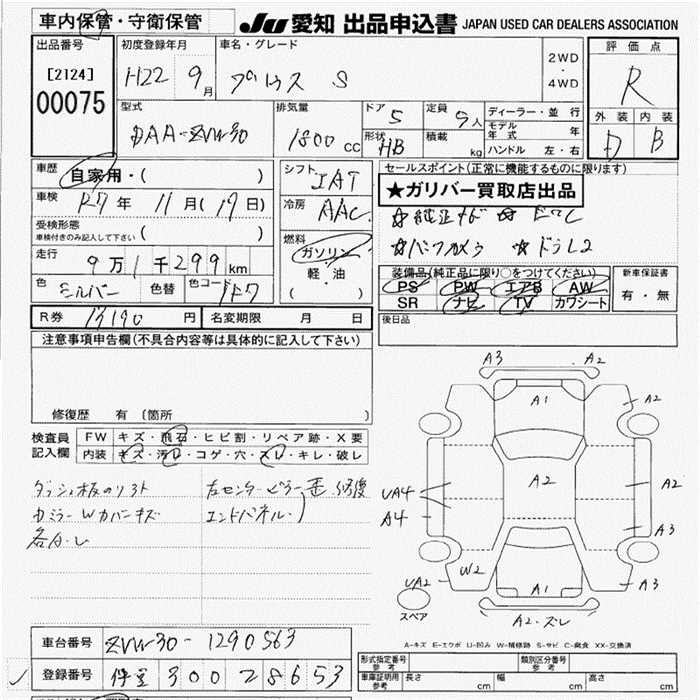 車内保管・守衛保管
JU 愛知 出品申込書 JAPAN USED CAR DEALERS ASSOCIATION
出品番号
[2124]
00075
初度登録年月
H22 9月
車名・グレード
プリウス S
2WD
・
4WD
評価点
R
外装 内装
D B
型式
DAA-ZVW30
排気量
1800 CC
ドア 5
定員 5人
形状 HB
積載 kg
ディーラー・並行
モデル年式 年
ハンドル 左・右
車歴
自家用・( )
車検
R7年 11月(19日)
受検形態
車検付きのみ記入して下さい ( )
走行
9万1千299km
色 シルバー 色替 色コード 1F7
シフト IAT
冷房 AAC
燃料
ガソリン
軽・油
( )
セールスポイント(正常に機能するものに限ります)
★ガリバー買取店出品
☆純正ナビ ☆
☆バックカメラ ☆
装備品(純正品に限り○をつけてください)
PS PW エアB AW
SR ナビ TV カワシート
新車保証書
有・無
R券 円 名変期限 月 日
後日品
注意事項申告欄(不具合内容等は具体的に記入して下さい)
修復歴 有 〔箇所 〕
検査員記入欄
FW キズ・飛石・ヒビ割・リペア跡・X要
内装 キズ・汚レ・コゲ・穴・スレ・キレ・破レ
左センターピラー 修復
エンドパネル
各A・U
A3 A2
A1
A2
A2
A2
UA4
A4
A3
W2
UA2
A1
A3
A2・ズレ
スペア
A-キズ E-エクボ U-凹み W-補修跡 S-サビ C-腐食 XX-交換済
車台番号 ZVW30-1290563
登録番号 300 28653
形式指定番号 参考
類別区分番号 参考
車庫証明用 参考 長さ cm 幅 cm 高さ cm